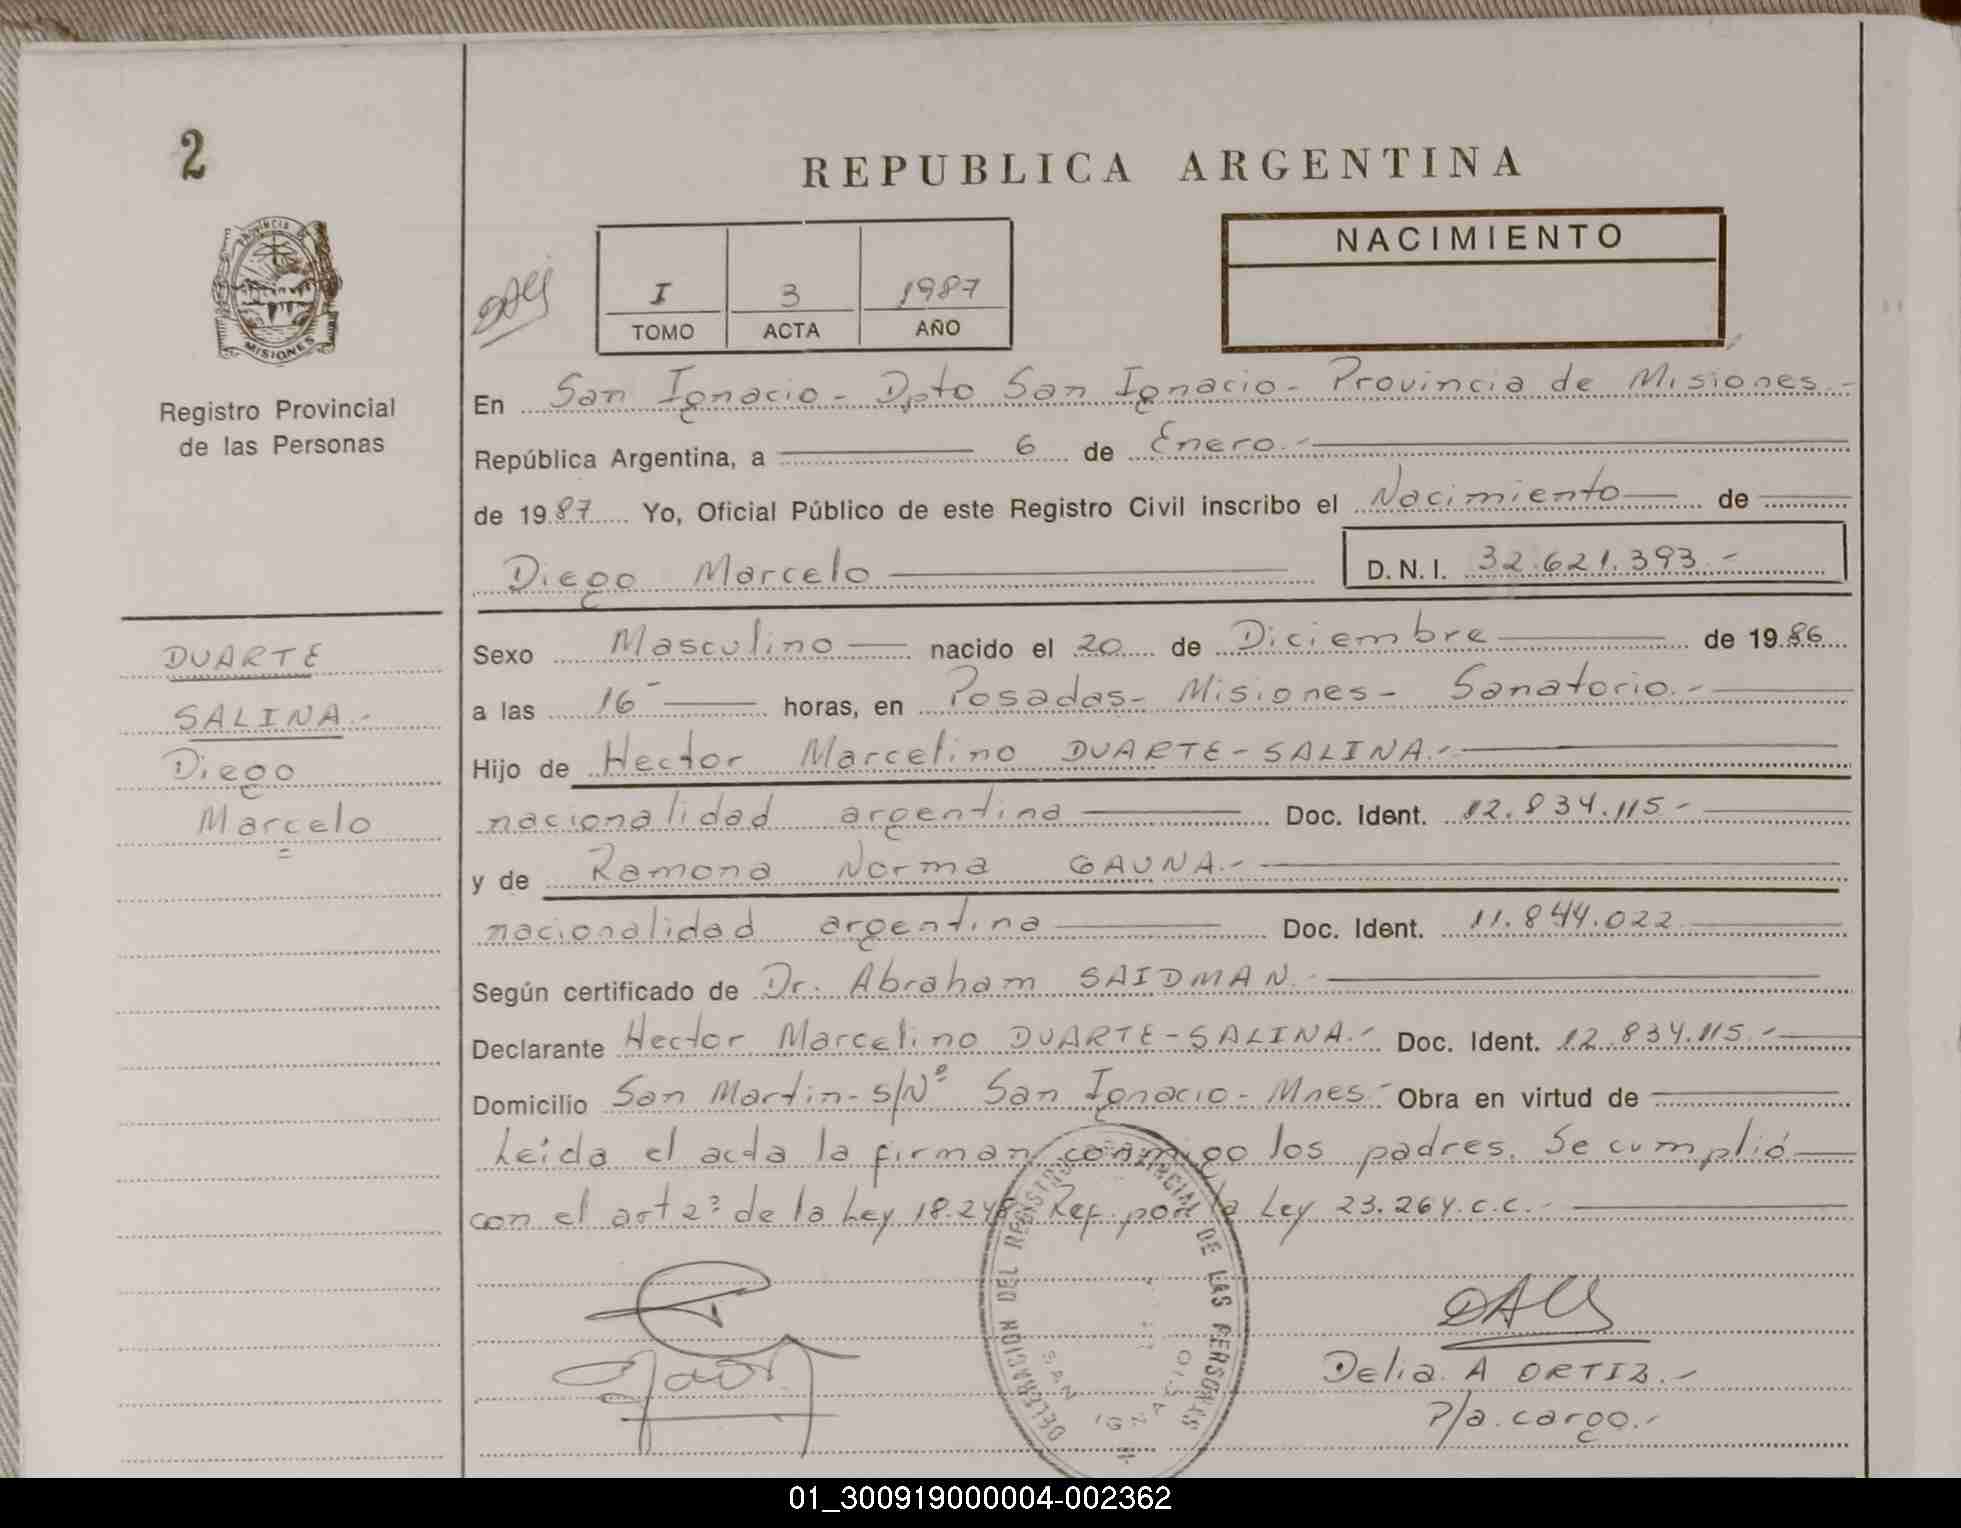 2
REPUBLICA ARGENTINA
PROVINCIA DE
MISIONES
Registro Provincial
de las Personas
I 3 1987
TOMO ACTA AÑO
NACIMIENTO
En San Ignacio - Dpto San Ignacio - Provincia de Misiones.-
República Argentina, a 6 de Enero.-
de 1987 Yo, Oficial Público de este Registro Civil inscribo el Nacimiento de
Diego Marcelo D.N.I. 32.621.393.-
DUARTE
SALINA.-
Diego
Marcelo
Sexo Masculino nacido el 20 de Diciembre de 1986
a las 16 horas, en Posadas - Misiones - Sanatorio.-
Hijo de Hector Marcelino DUARTE-SALINA.-
nacionalidad argentina Doc. Ident. 12.834.115-
y de Ramona Norma GAUNA.-
nacionalidad argentina Doc. Ident. 11.844.022
Según certificado de Dr. Abraham SAIDMAN.-
Declarante Hector Marcelino DUARTE-SALINA.- Doc. Ident. 12.834.115.-
Domicilio San Martin - s/Nº San Ignacio - Mnes.- Obra en virtud de
Leida el acta la firman conmigo los padres. Se cumplió
con el art 2º de la Ley 18.248 Ref. por la Ley 23.264.C.C.-
DELEGACION DEL REGISTRO PROVINCIAL DE LAS PERSONAS
SAN IGNACIO
Delia A ORTIZ.-
P/a. cargo.-
01_300919000004-002362